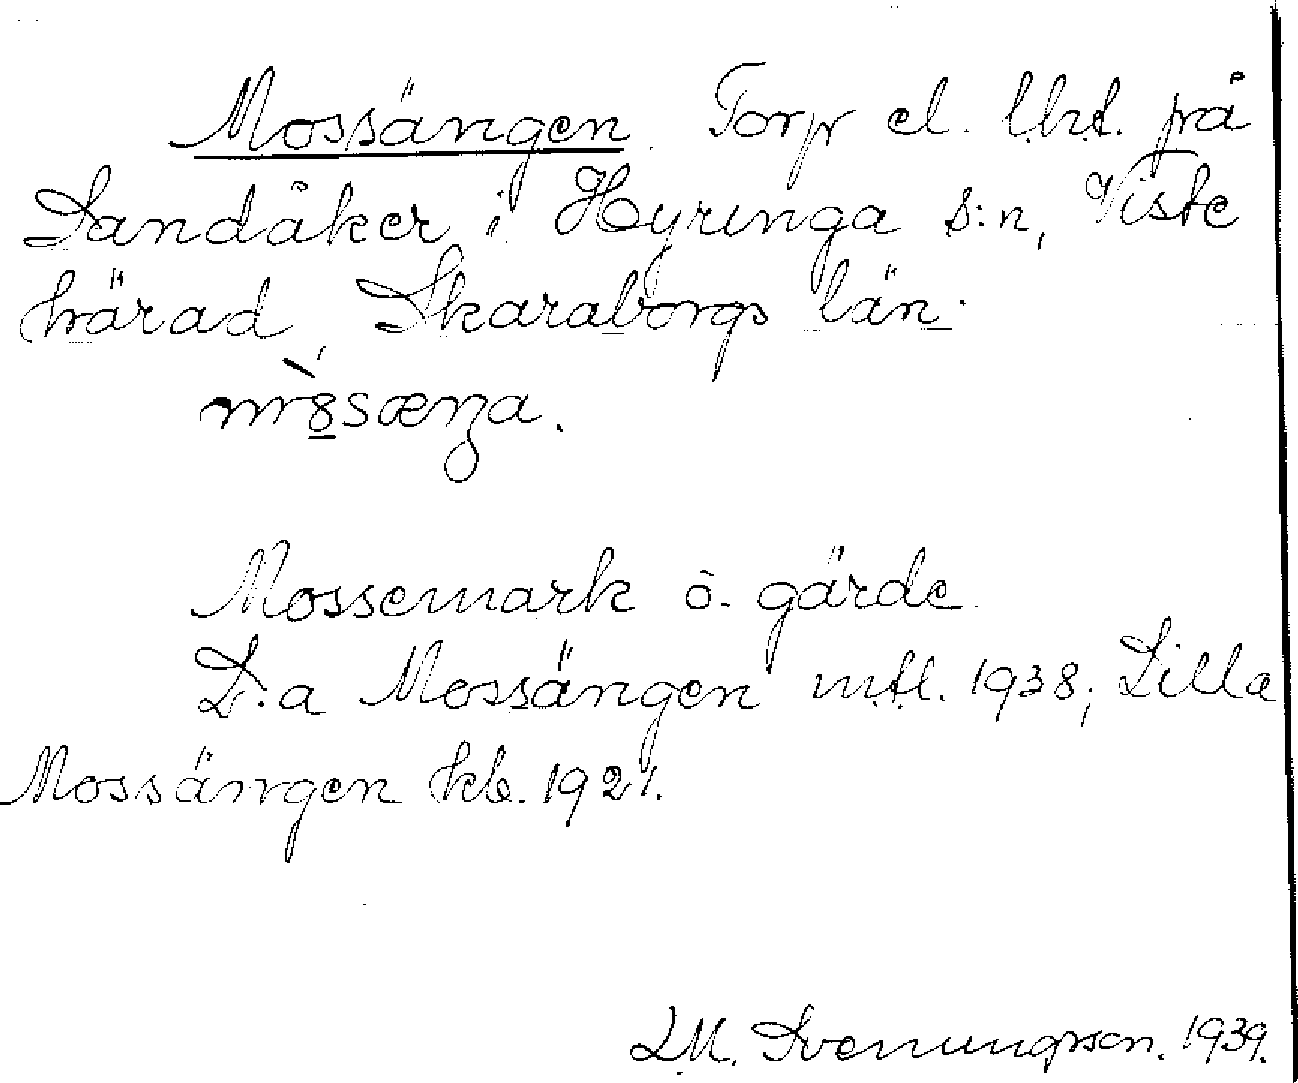 Mossängen. Torp el. lht. på
Sandåker i Hyringa s:n, Viste
härad, Skaraborgs län.
Mossemark o. gärde.
L:a Mossängen mtl. 1938; Lilla
Mossängen kb. 1921.
L.M. Svenungsson. 1939.